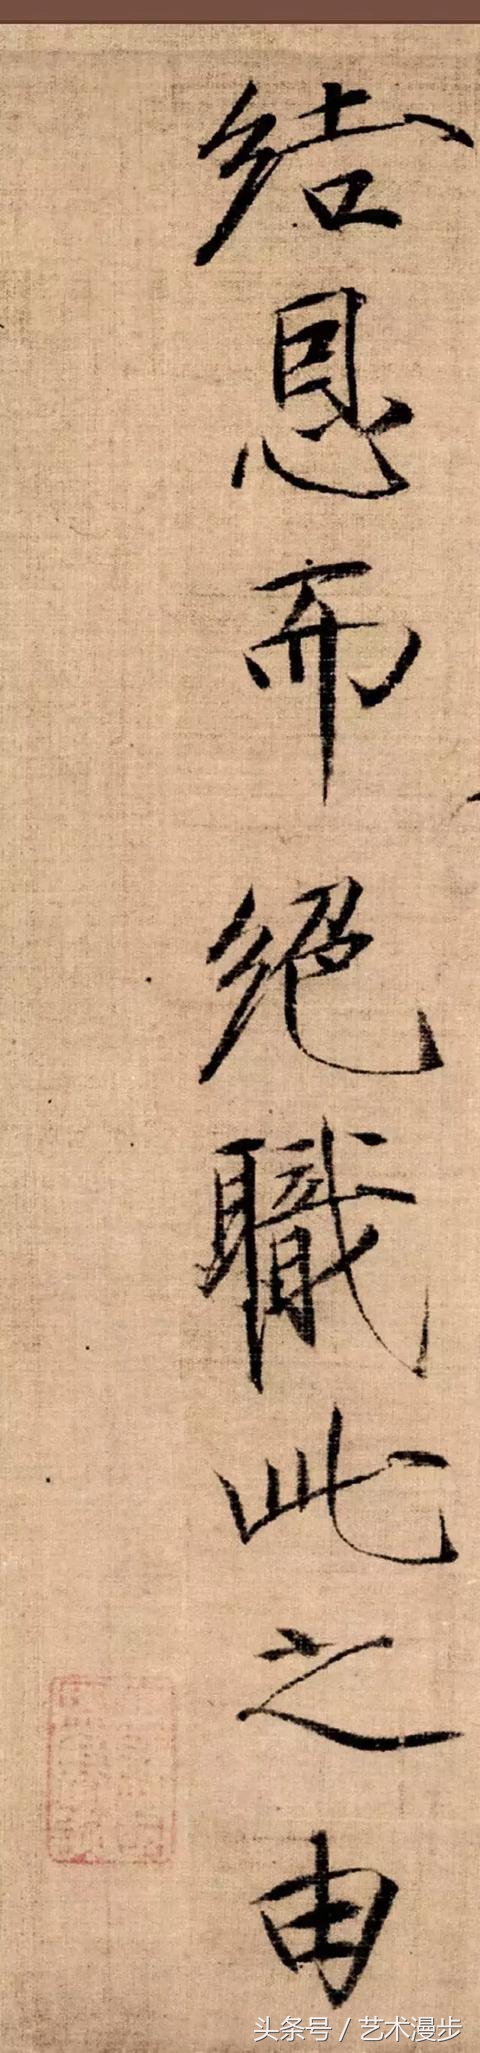 結恩而絕職此之由
头条号 / 艺术漫步